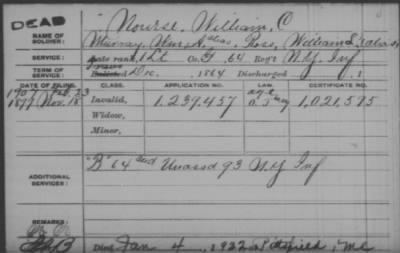 DEAD
NAME OF SOLDIER:
Nourse, William, C
Murray, Wm. A. alias Ross, William S. alias
SERVICE:
Late rank, 1 Lt Co. G, 64 Reg't N.Y. Inf
TERM OF SERVICE:
Enlisted Dec., 1864 Discharged , 1
DATE OF FILING. CLASS. APPLICATION NO. LAW. CERTIFICATE NO.
1907 Feb. 23 age
1897 Nov. 18 Invalid, 1,239,457 1,021,575
Widow,
Minor,
ADDITIONAL SERVICES:
"B" 64 and Unassd 93 N.Y. Inf
REMARKS:
Died Jan 4, 1922 at Pittsfield, Me